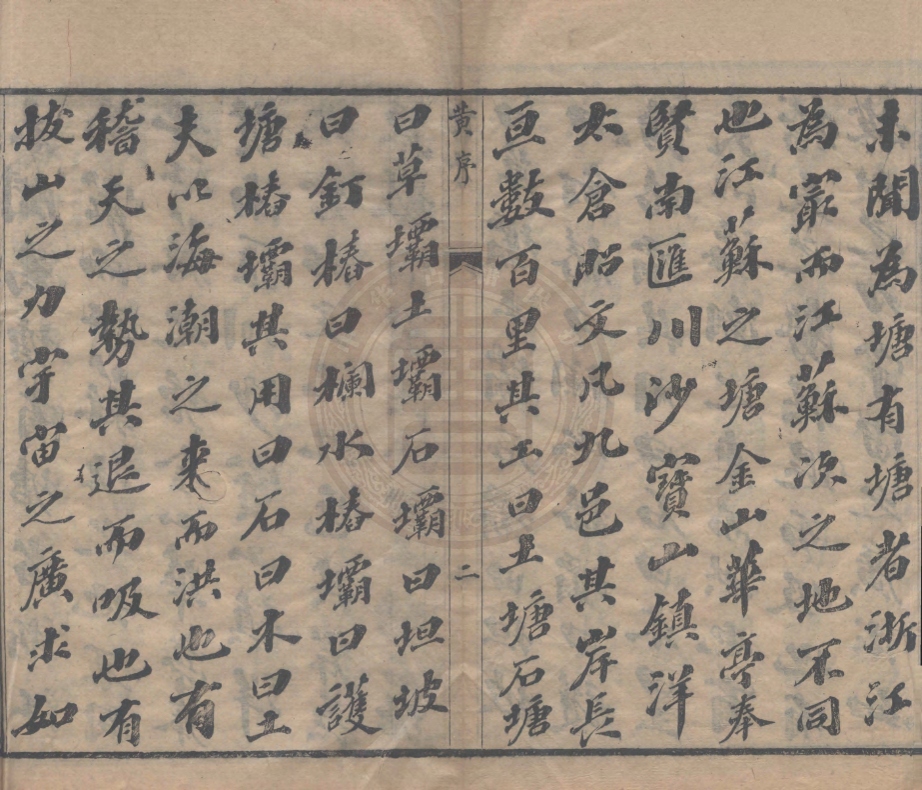 未聞為塘有塘者浙江
為㝡而江蘇次之地不同
也江蘇之塘金山華亭奉
賢南匯川沙寶山鎮洋
太倉昭文凡九邑其岸長
亘數百里其工曰土塘石塘
黄序
二
曰草壩土壩石壩曰坦坡
曰釘樁曰欄水樁壩曰護
塘樁壩其用曰石曰木曰土
夫以海潮之来而洪也有
稽天之勢其退而吸也有
拔山之力宇宙之廣求如